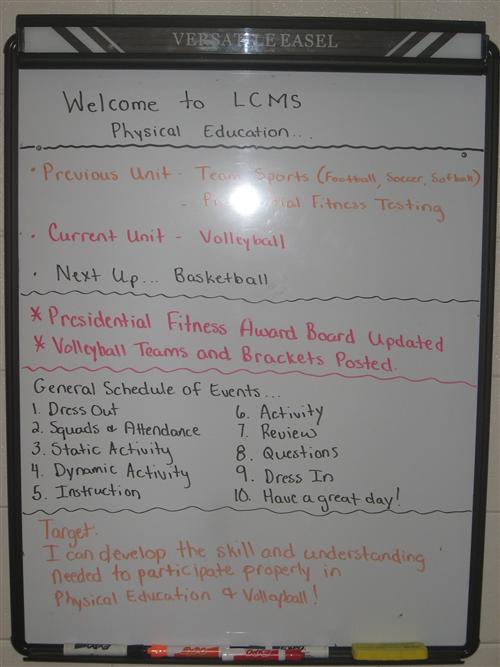 VERSATILE EASEL
Welcome to LCMS
Physical Education...
• Previous Unit - Team Sports (Football, Soccer, Softball)
- Presidential Fitness Testing
• Current Unit - Volleyball
• Next Up... Basketball
* Presidential Fitness Award Board Updated
* Volleyball Teams and Brackets Posted.
General Schedule of Events...
1. Dress Out
2. Squads & Attendance
3. Static Activity
4. Dynamic Activity
5. Instruction
6. Activity
7. Review
8. Questions
9. Dress In
10. Have a great day!
Target:
I can develop the skill and understanding
needed to participate properly in
Physical Education & Volleyball!
EXPO